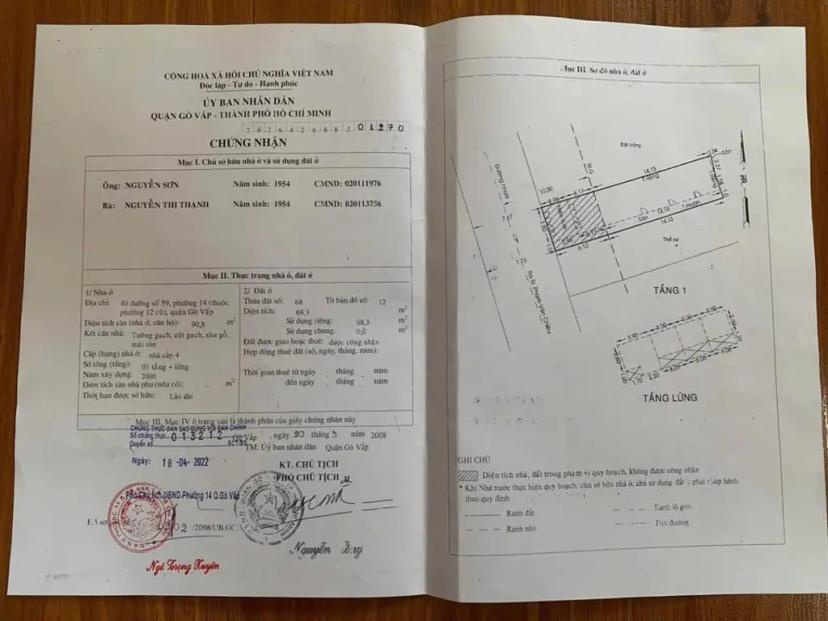 CỘNG HOÀ XÃ HỘI CHỦ NGHĨA VIỆT NAM
Độc lập - Tự do - Hạnh phúc
ỦY BAN NHÂN DÂN
QUẬN GÒ VẤP - THÀNH PHỐ HỒ CHÍ MINH
01270
CHỨNG NHẬN
Mục I. Chủ sở hữu nhà ở và sử dụng đất ở
Ông: NGUYỄN SƠN Năm sinh: 1954 CMND: 020111976
Bà: NGUYỄN THỊ THẠNH Năm sinh: 1954 CMND: 020113756
Mục II. Thực trạng nhà ở, đất ở
1/ Nhà ở
Địa chỉ: 40 đường số 59, phường 14 (thuộc
phường 12 cũ), quận Gò Vấp
Diện tích sàn (nhà ở, căn hộ): 90,8 m2
Kết cấu nhà: Tường gạch, cột gạch, sàn gỗ,
mái tôn
Cấp (hạng) nhà ở: nhà cấp 4
Số tầng (tầng): 01 tầng + lửng
Năm xây dựng: 2000
Diện tích sàn nhà phụ (nếu có): m2
Thời hạn được sở hữu: Lâu dài
2/ Đất ở
Thửa đất số: 68 Tờ bản đồ số: 12
Diện tích: 68,3 m2
Sử dụng riêng: 68,3 m2
Sử dụng chung: 0,0 m2
Đất được giao hoặc thuê: được công nhận
Hợp đồng thuê đất (số, ngày, tháng, năm):
Thời gian thuê từ ngày tháng năm
đến ngày tháng năm
Mục III, Mục IV ở trang sau là thành phần của giấy chứng nhận này
CHỨNG THỰC BẢN SAO ĐÚNG VỚI BẢN CHÍNH
Số chứng thực 013212
Quyển số SCT/BS
Gò Vấp, ngày 20 tháng 5 năm 2008
TM. Ủy ban nhân dân Quận Gò Vấp
Ngày: 18-04-2022
KT. CHỦ TỊCH
PHÓ CHỦ TỊCH
Phó Chủ tịch UBND Phường 14 Q.Gò Vấp
/2008/UB.GC
Ngô Trọng Xuyên
Mục III. Sơ đồ nhà ở, đất ở
Đất trống
Đường nhựa
Ra Đ. Phạm Văn Chiêu
10.00
14.13
14.13
6.12
Thổ cư
TẦNG 1
TẦNG LỬNG
GHI CHÚ
Diện tích nhà, đất trong phạm vi quy hoạch, không được công nhận
* Khi Nhà nước thực hiện quy hoạch, chủ sở hữu nhà ở, chủ sử dụng đất ở phải chấp hành
theo quy định
Ranh đất Ranh lộ giới
Ranh nhà Tim đường